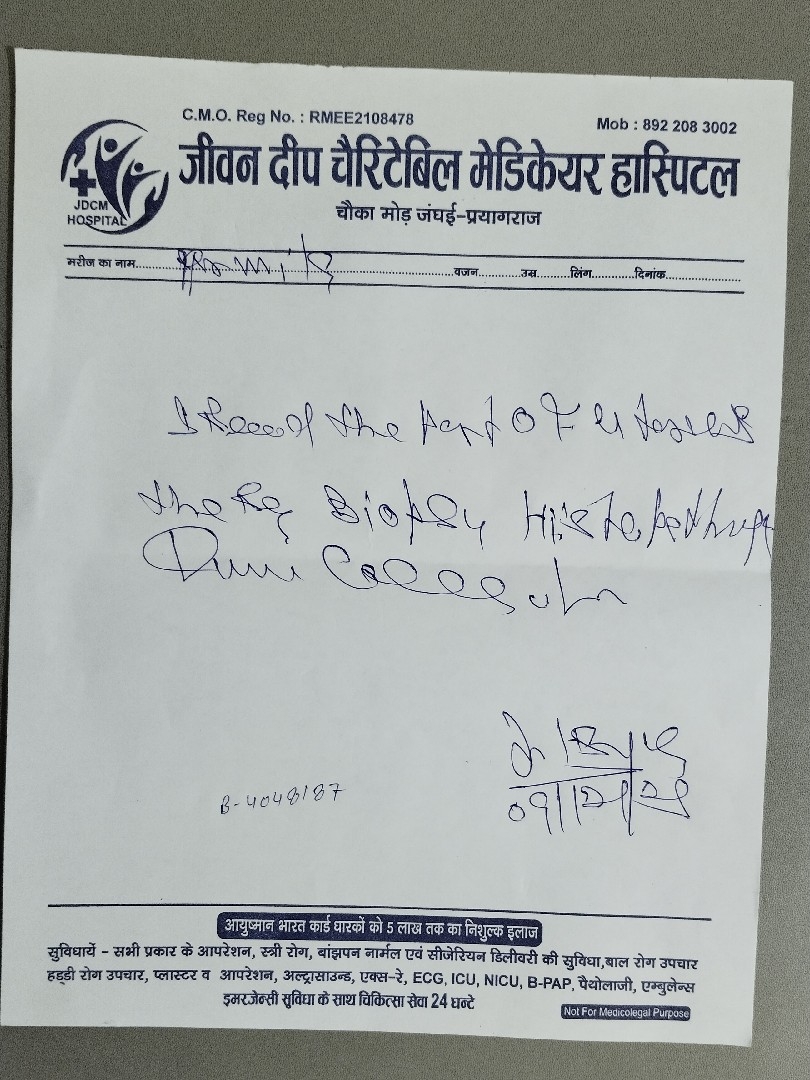 C.M.O. Reg No. : RMEE2108478
Mob : 892 208 3002
JDCM
HOSPITAL
जीवन दीप चैरिटेबिल मेडिकेयर हास्पिटल
चौका मोड़ जंघई-प्रयागराज
मरीज का नाम.......... वजन.......... उम्र.......... लिंग.......... दिनांक..........
the part OF
the Biopsy
B-4048187
आयुष्मान भारत कार्ड धारकों को 5 लाख तक का निशुल्क इलाज
सुविधायें - सभी प्रकार के आपरेशन, स्त्री रोग, बांझपन नार्मल एवं सीजेरियन डिलीवरी की सुविधा,बाल रोग उपचार
हड्डी रोग उपचार, प्लास्टर व आपरेशन, अल्ट्रासाउन्ड, एक्स-रे, ECG, ICU, NICU, B-PAP, पैथोलाजी, एम्बुलेन्स
इमरजेन्सी सुविधा के साथ चिकित्सा सेवा 24 घन्टे
Not For Medicolegal Purpose